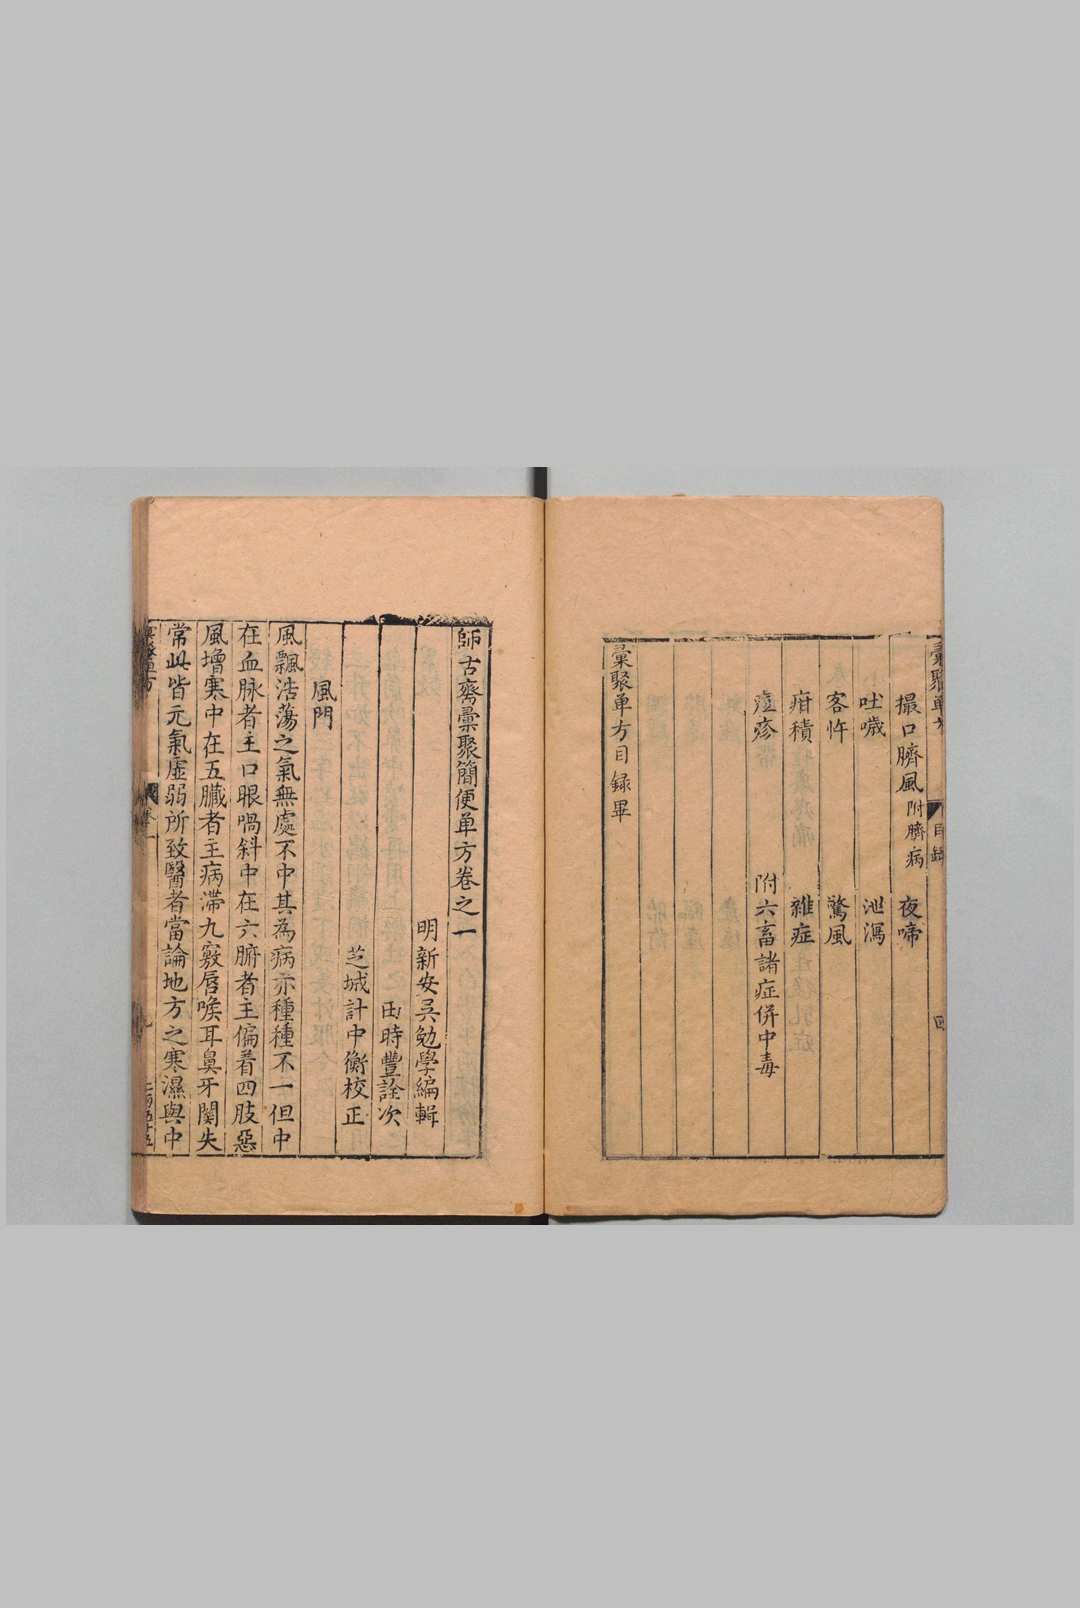 彚聚單方
目錄
四
撮口臍風附臍病
夜啼
吐噦
泄瀉
客忤
驚風
疳積
雜症
痘疹
附六畜諸症併中毒
彚聚单方目録畢
師古齋彚聚簡便单方卷之一
明新安吳勉學編輯
田時豐詮次
芝城計中衡校正
風門
風飄浩蕩之氣無處不中其為病亦種種不一但中
在血脉者主口眼喎斜中在六腑者主偏着四肢惡
風增寒中在五臟者主病滯九竅唇喉耳鼻牙関失
常此皆元氣虛弱所致醫者當論地方之寒濕與中